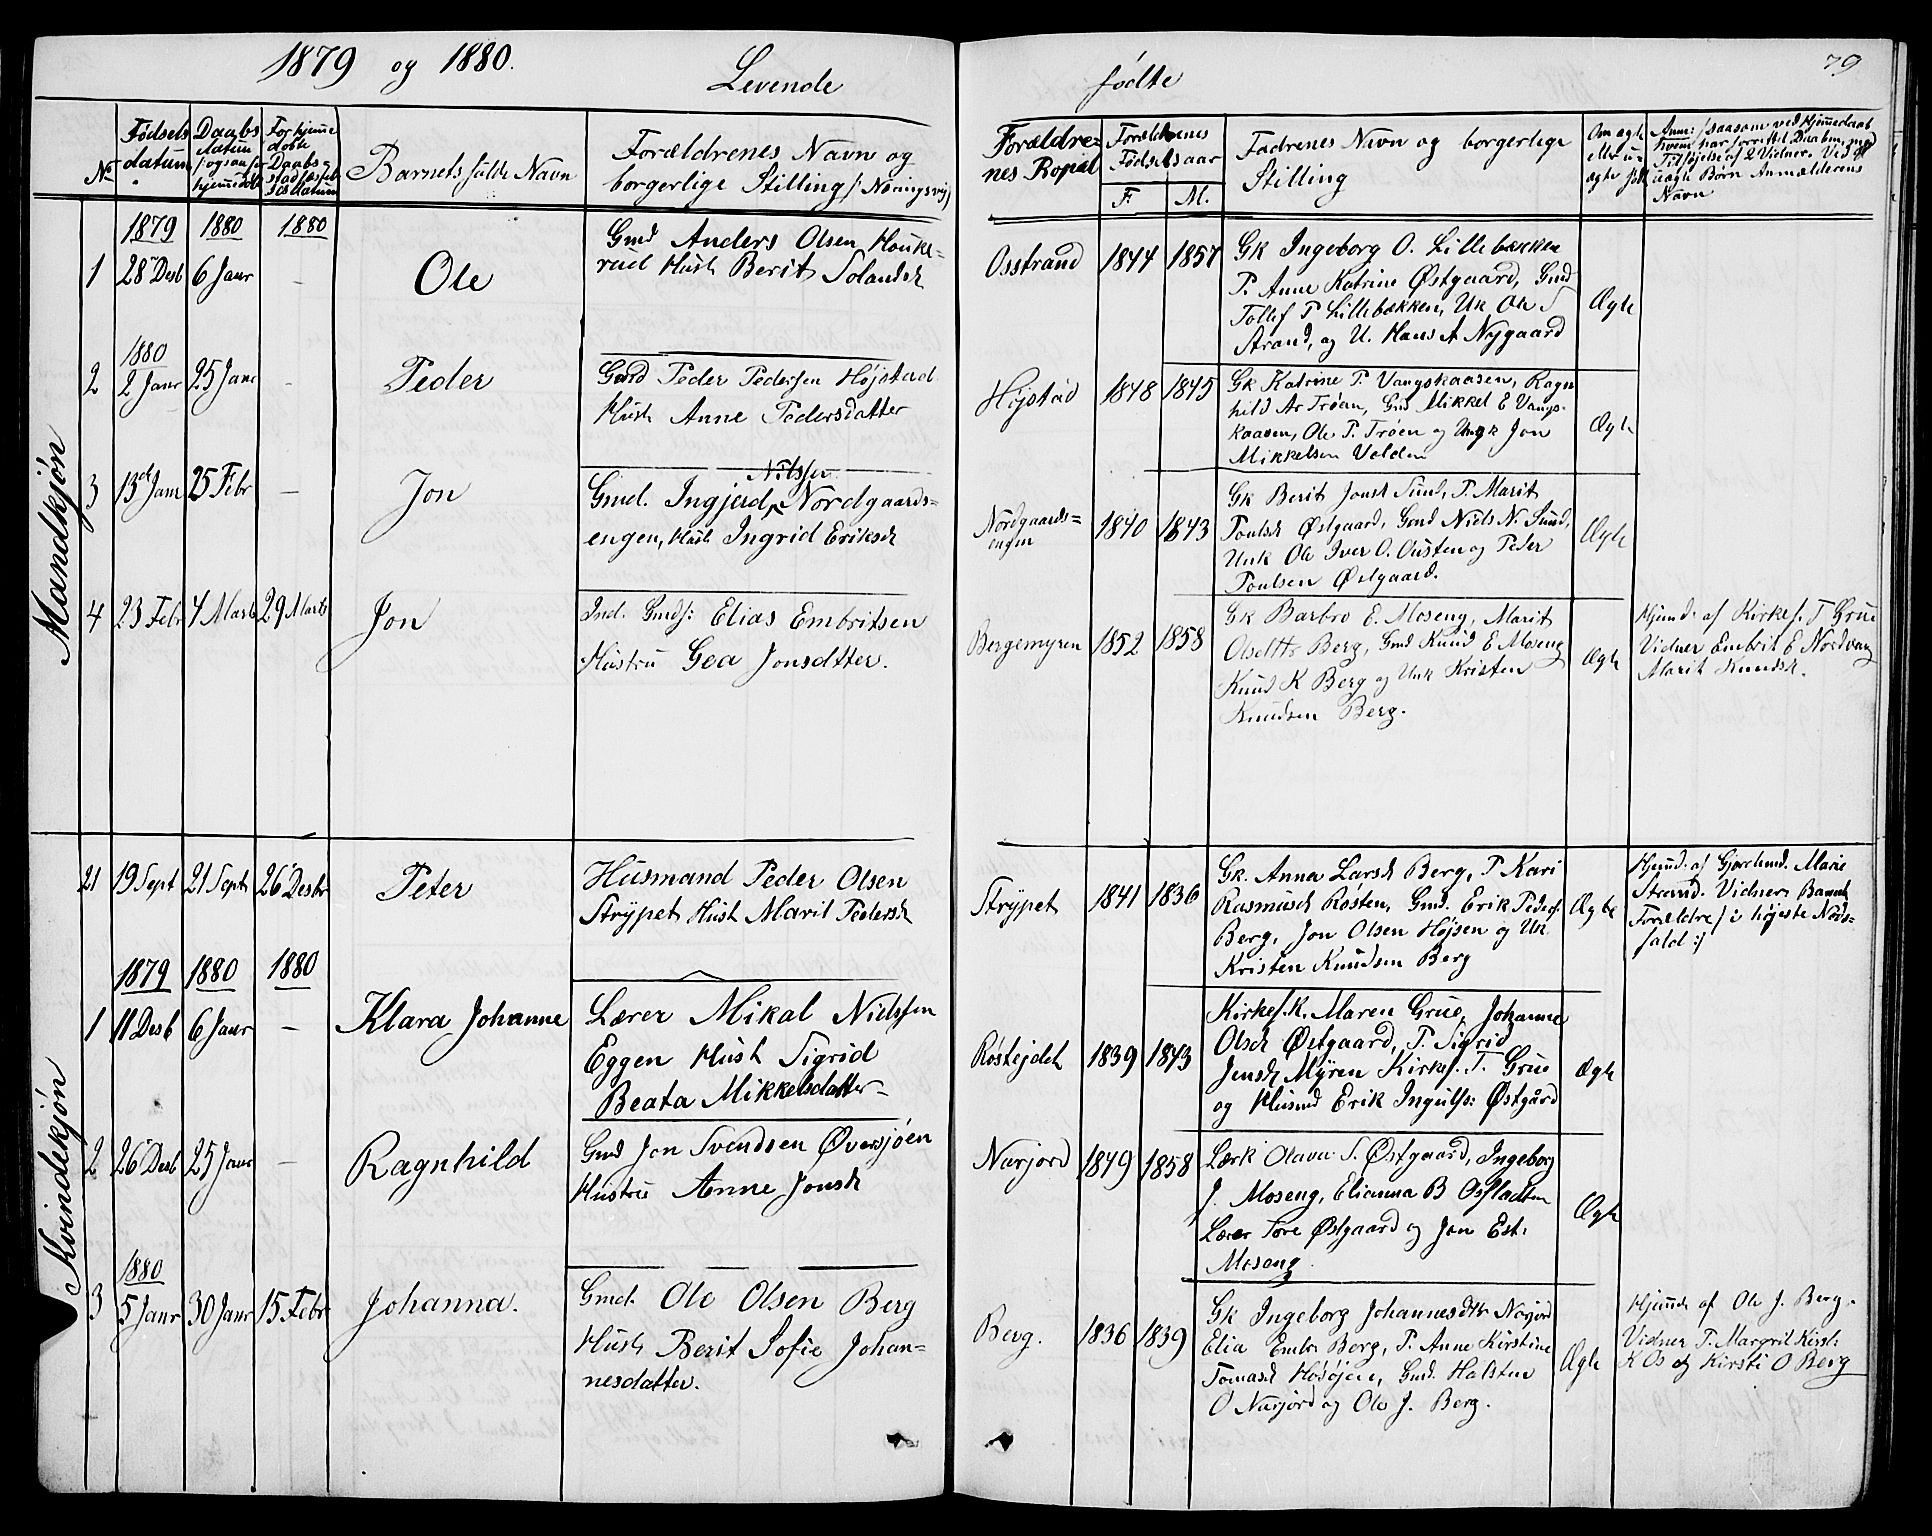 1879 og 1880.
Levende
fødte
79
No
Fødsels
datum
Daabs
datum
(ogsaa for
hjemmedøbte
For hjemme
døbte
Daabs
stadfæstel-
ses datum
Barnets fulde Navn
Forældrenes Navn og
borgerlige Stilling (: Næringsvej)
Forældre-
nes Bopæl
Forældrenes
Fødselsaar
F. M.
Fadrenes Navn og borgerlige
Stilling
Om ægte
eller u-
ægte født
Anm: saasom ved Hjemmedaab
hvem har forrettet Daaben, med
Tilføjelse af 2 Vidner. Ved
uægte Børn Anmælderens
Navn
Mandkjøn
1879 1880 1880
1 28 Desb 6 Janr - Ole
Gmd Anders Olsen Houke-
rud Hust Berit Solandsd
Osstrand 1844 1857
Gk Ingeborg O. Lillebækken
P. Anne Katrine Østgaard, Gmd
Tollef P Lillebækken, Uk Ole S
Strand, og U. Hans A Nygaard
Ægte
1880
2 2 Janr 25 Janr - Peder
Gmd Peder Pedersen Højstad
Hust Anne Pedersdatter
Højstad 1848 1845
Gk Katrine P. Vangskaasen, Ragn
hild Ar Trøen, Gmd Mikkel E Vangs-
kaasen, Ole P. Trøen og Ungk Jon
Mikkelsen Volden
Ægte
3 13de Janr 25 Febr - Jon
Nilssen
Gmd. Ingjerd Nordgaards-
engen, Hust Ingrid Eriksd
Nordgaards=
engen 1840 1843
Gk Berit Jonsd Sund, P. Marit
Poulsd Østgaard, Gmd Niels N. Sund,
Unk Ole Iver O. Ousten og Peder
Poulsen Østgaard.
Ægte
4 23 Febr 4 Marts 29 Marts Jon
Ind. Gmds: Elias Embritsen
Hustru Gea Jonsdtter.
Bergemyren 1852 1858
Gk Barbro E. Moseng, Marit
Olsdtts Berg, Gmd Knud E Moseng
Knud K Berg og Unk Kristen
Knudsen Berg.
Ægte
Hjemd. af Kirkes. T Grue
Vidner Embrit E Nordvang
Marit Knudsd.
21 19 Sept 21 Sept 26 Desbr Peter
Husmand Peder Olsen
Strypet Hust Marit Pedersd
Strypet 1841 1836
Gk. Anna Larsd Berg, P Kari
Rasmusd Røsten, Gmd. Erik Peders
Berg, Jon Olsen Højsen og Uk
Kristen Knudsen Berg
Ægte
Hjemd. af Gjordemd. Marie
Strand. Vidner Barnets
Forældre (i højeste Nøds-
fald:)
Kvindekjøn
1879 1880 1880
1 11 Desb 6 Janr - Klara Johanne
Lærer Mikal Nielssen
Eggen Hust Sigrid
Beata Mikkelsdatter-
Røstejdet 1839 1843
Kirkes.k. Maren Grue, Johanne
Olsd Østgaard, P. Sigrid
Jensd Myren Kirkes. T. Grue
og Husmd Erik Ingulfs: Østgård
Ægte
2 26 Desb 25 Janr - Ragnhild
Gmd Jon Svendsen Øversjøen
Hustru Anne Jonsd
Narjord 1849 1858
Lærk Olava S. Østgaard, Ingeborg
J. Moseng, Elianna B Osfladten
Lærer Tore Østgaard og Jon Est:
Moseng
Ægte
1880
3 5 Janr 30 Janr 15 Febr Johanna.
Gmd. Ole Olsen Berg
Hust Berit Sofie Johan-
nesdatter.
Berg. 1836 1839
Gk Ingeborg Johannesdtr Narjord
Elia Embr Berg, P. Anne Kirstine
Tomasd Høsøjen, Gmd. Halsten
O Narjord og Ole J. Berg.
Ægte
Hjemd af Ole J. Berg.
Vidner P. Margrit Kirst.
K Os og Kirsti O Berg